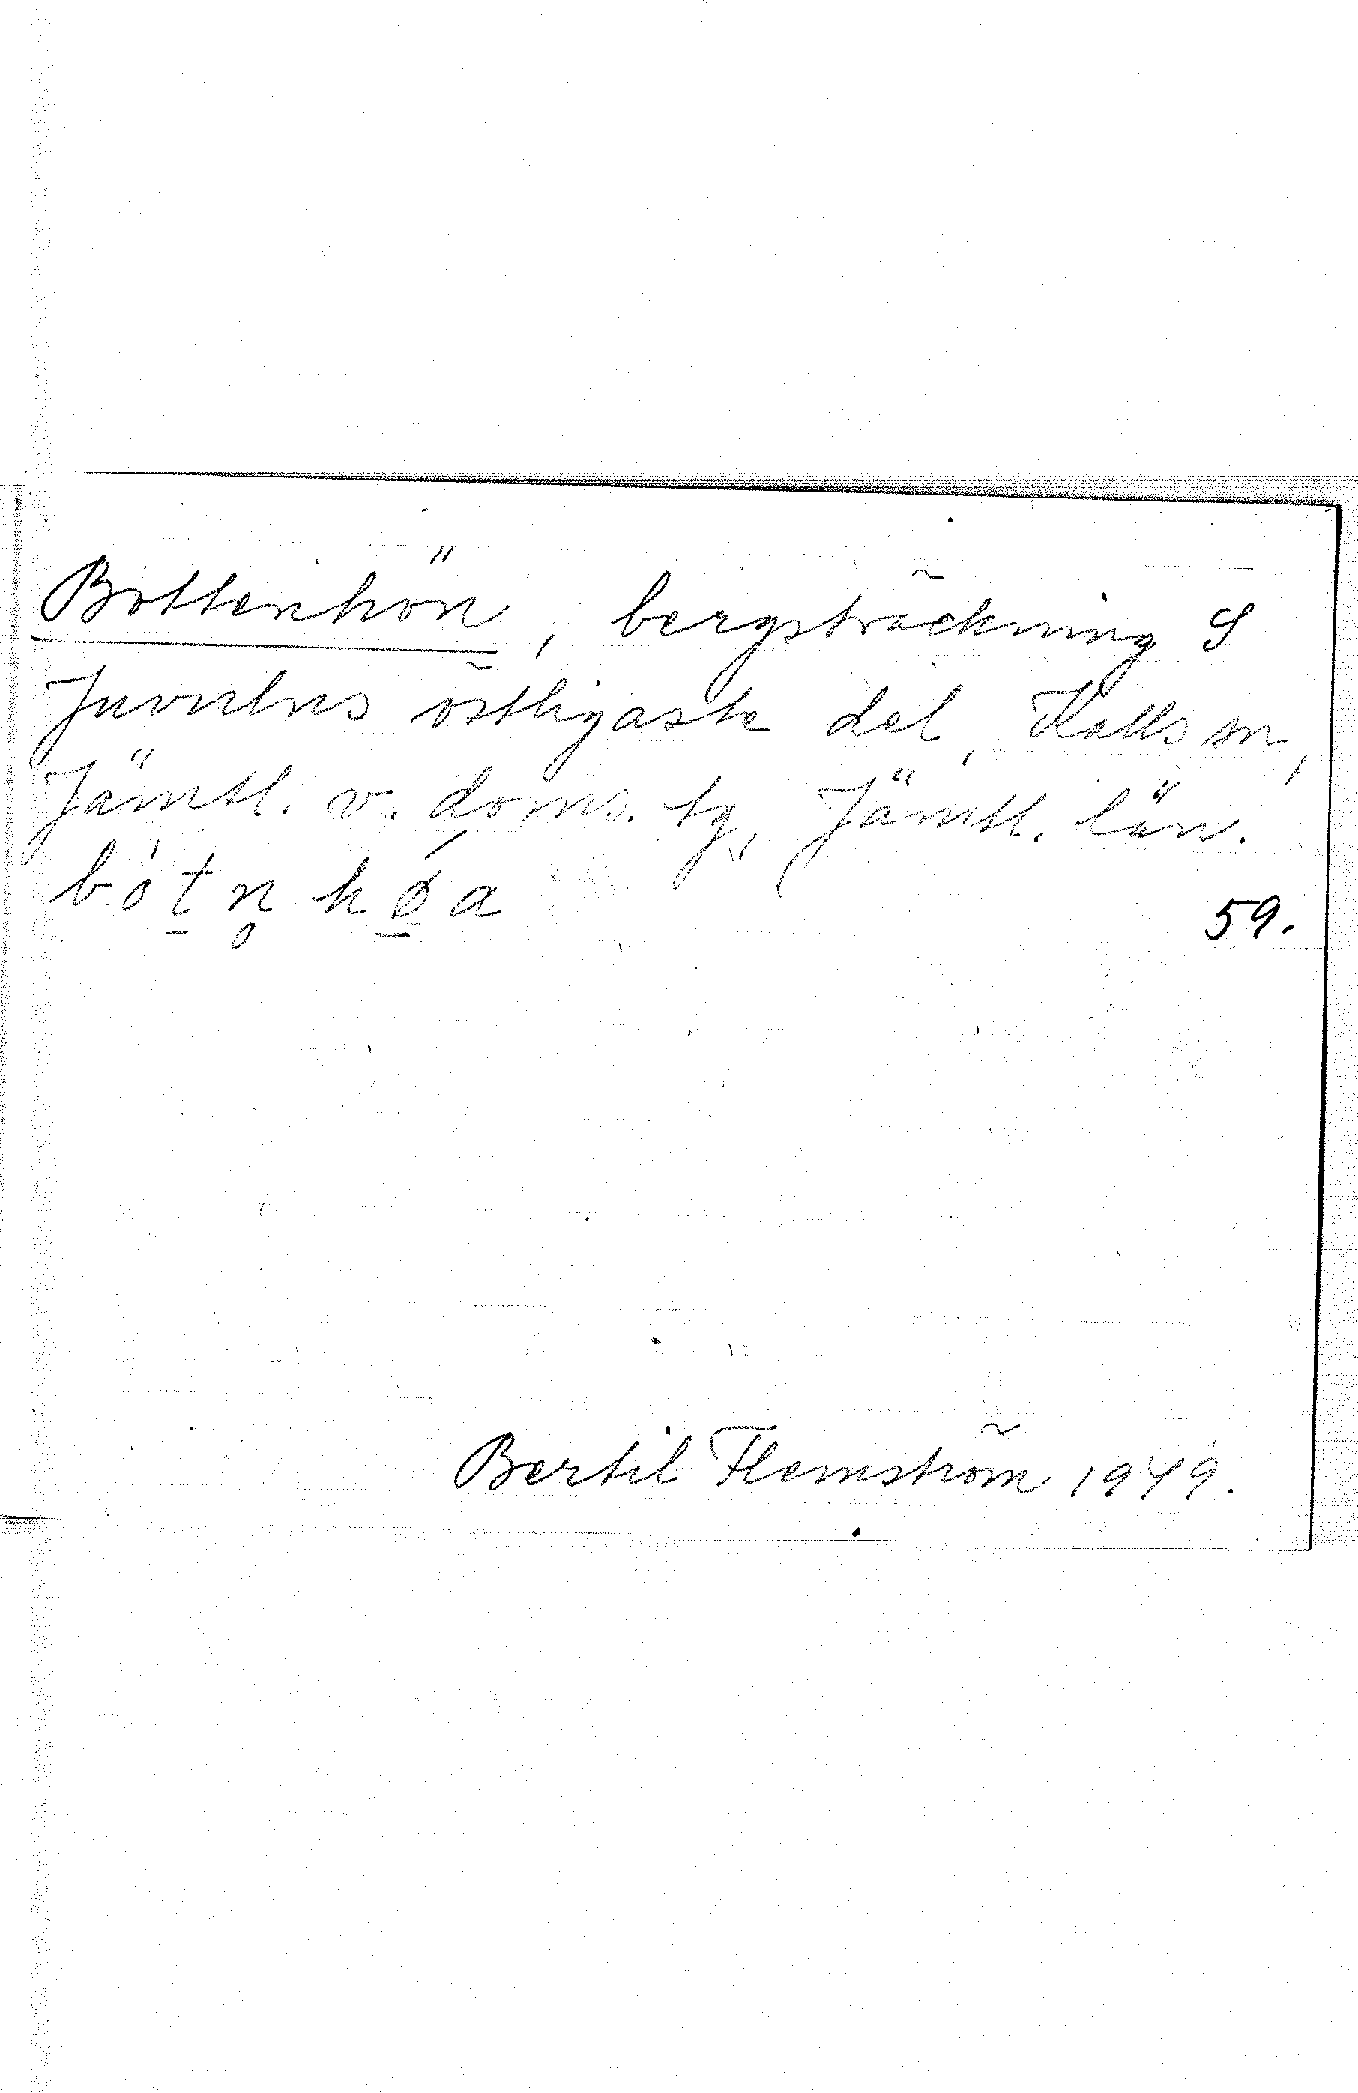 Bottenhön, bergsträckning S
Juvulns östligaste del, Kalls sn,
Jämtl. v. doms. tg, Jämtl. län.
bòt̲n̥ hǿ̲a
59.
Bertil Flemström 1949.